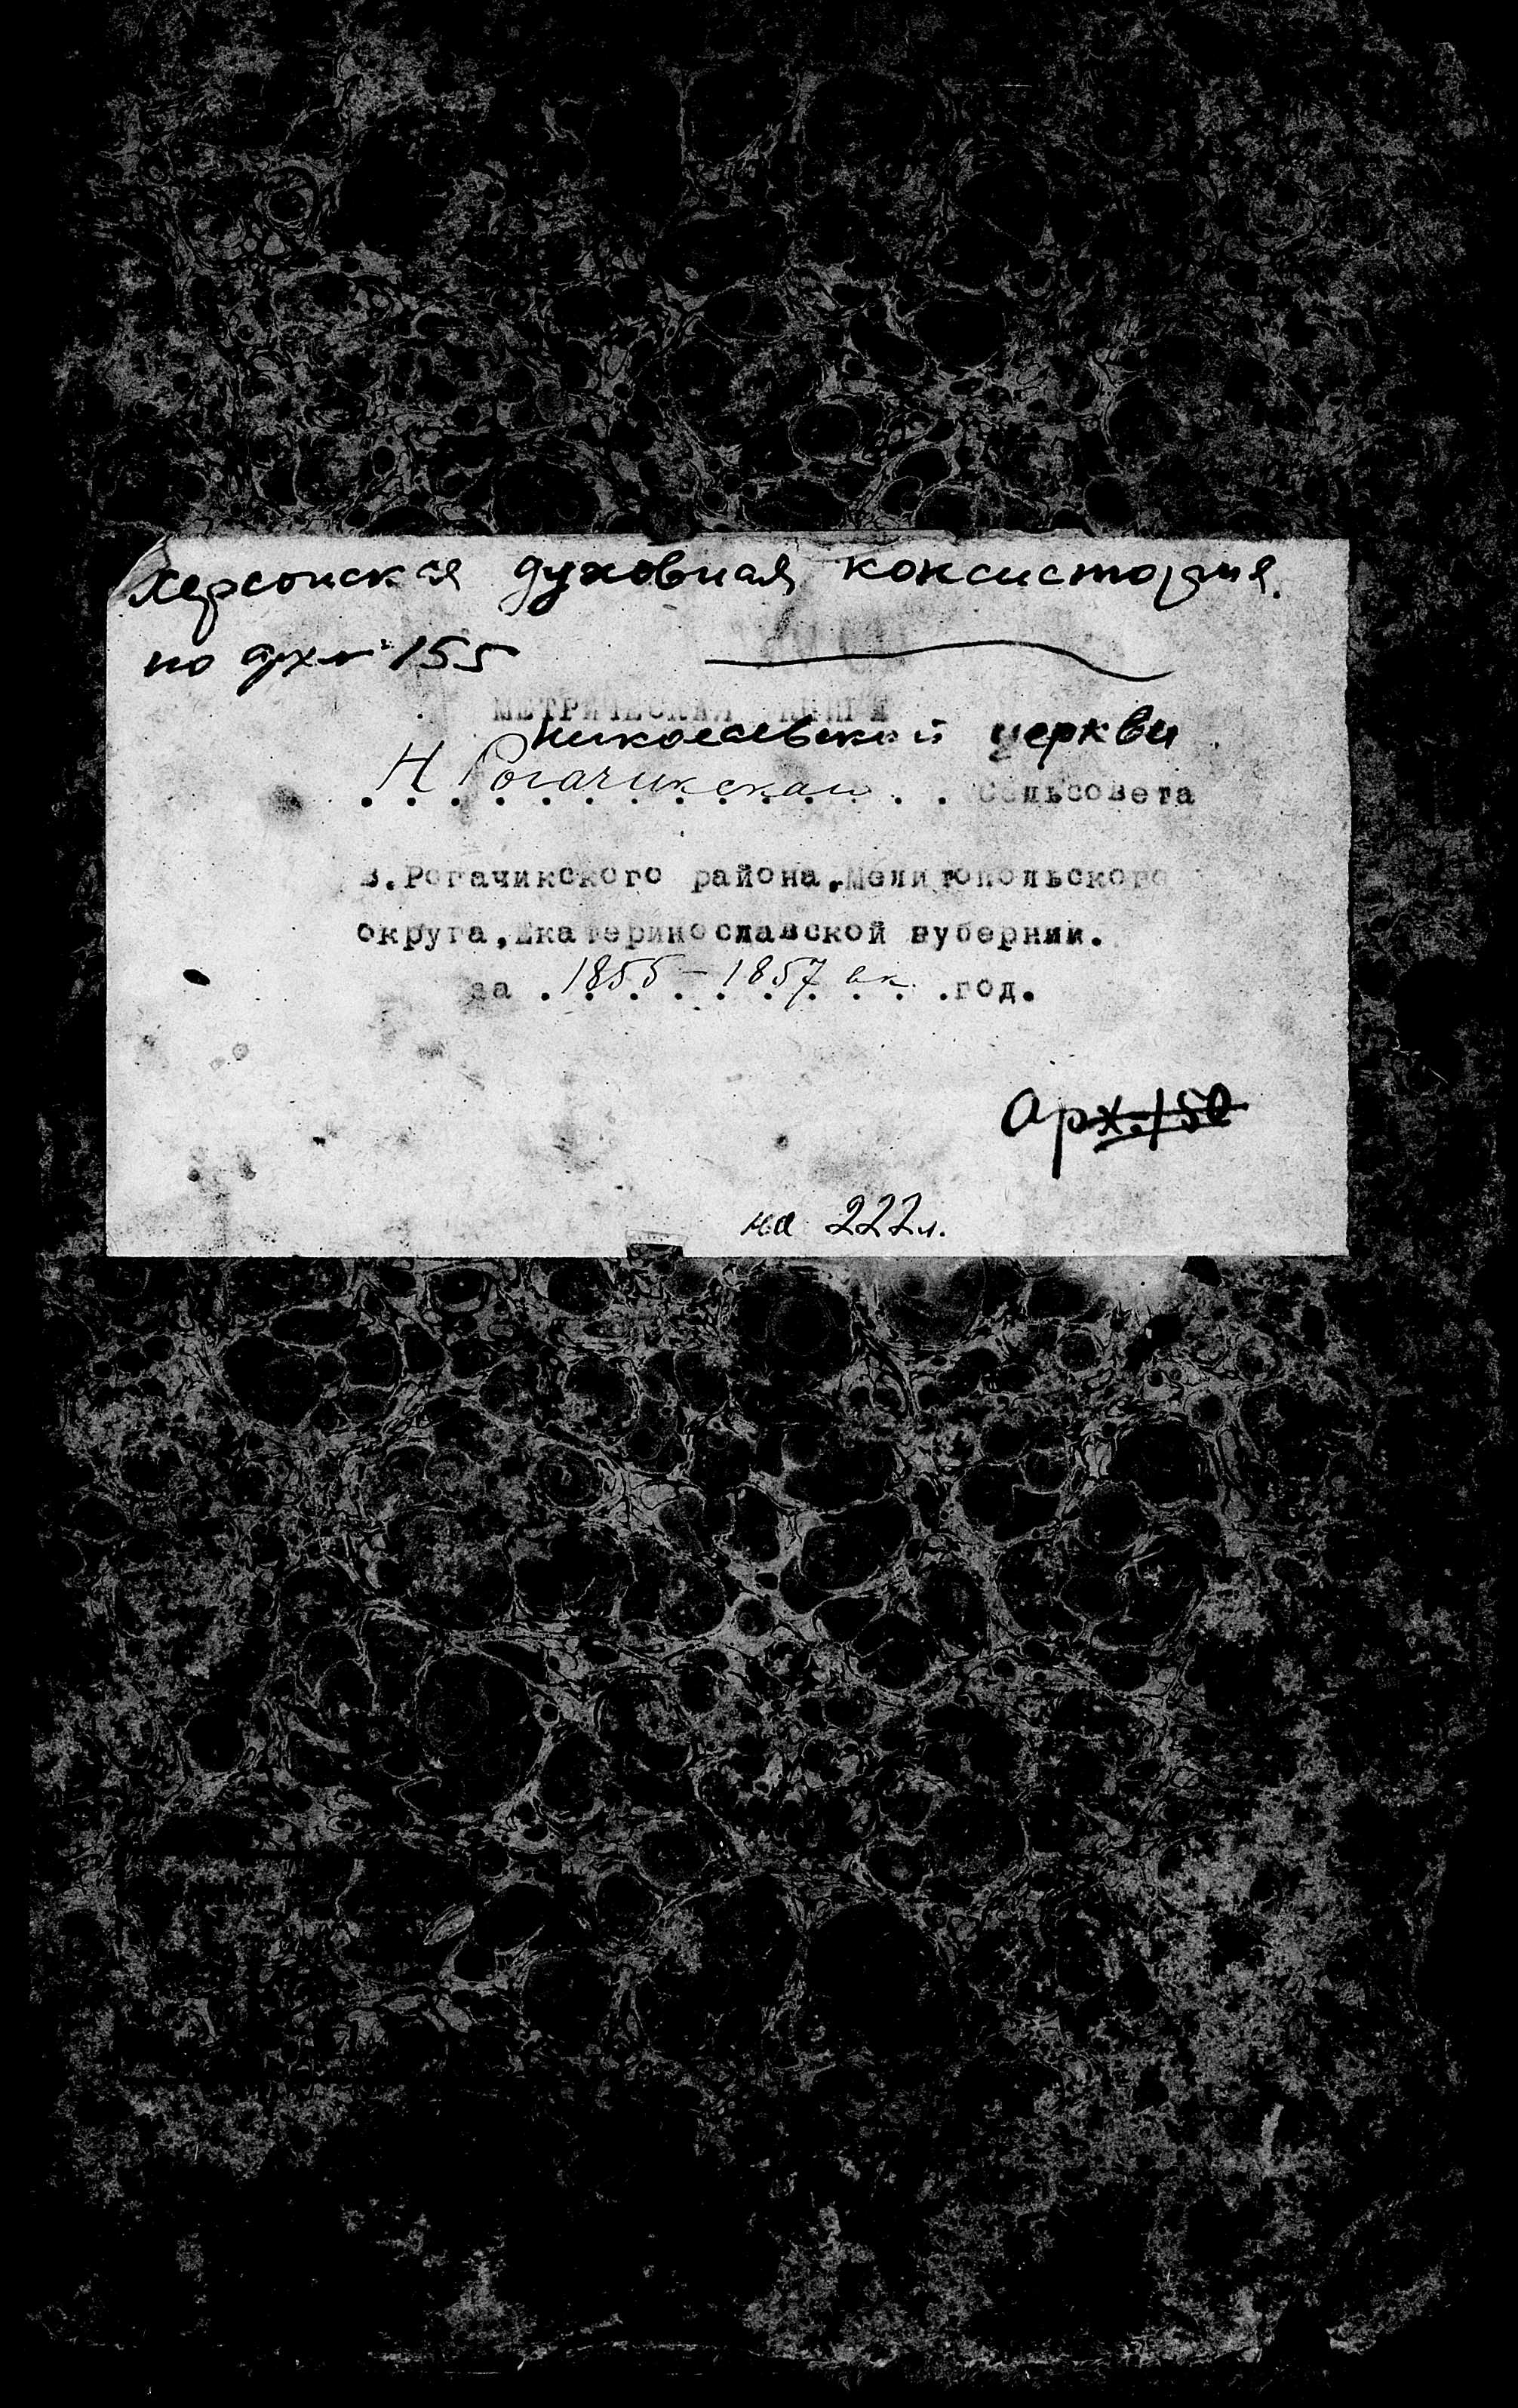 Херсонская духовная консистория.
по арх № 155
МЕТРИЧЕСКАЯ КНИГА
Николаевской церкви
Н Рогачикская . . . Сельсовета
В.Рогачикского района,Мелитопольского
округа,Екатеринославской губернии.
за . 1855 – 1857 вк . год.
Арх. 150
на 222 л.